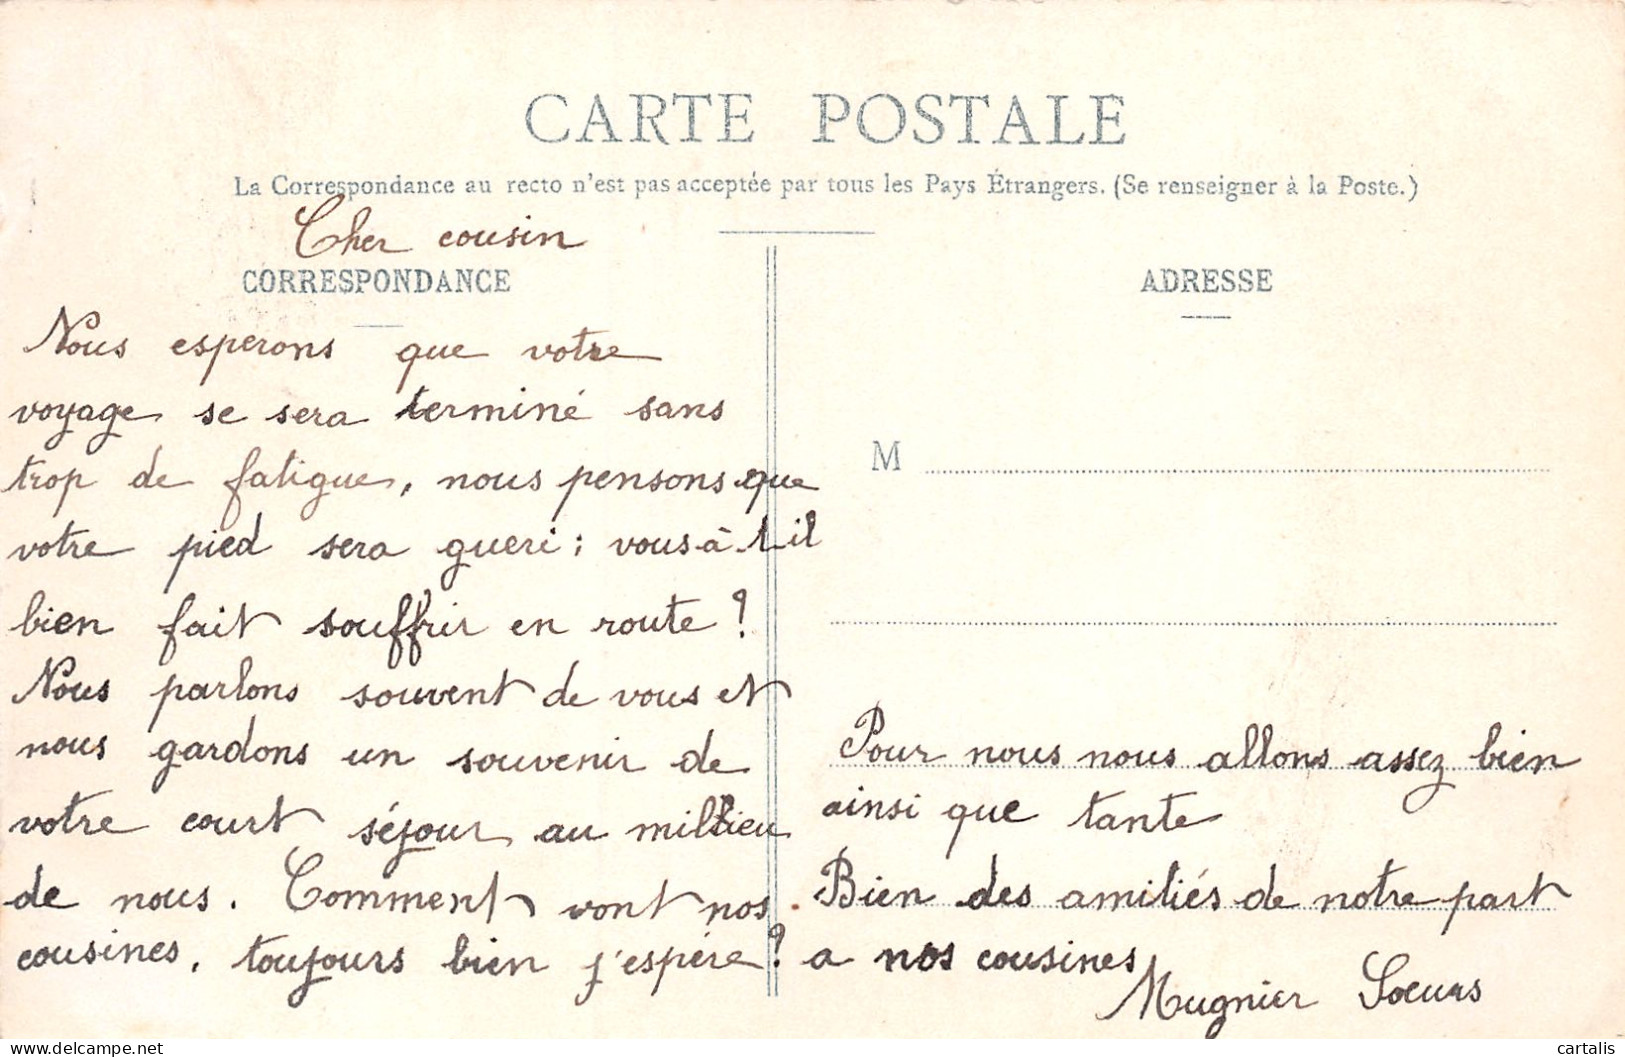 CARTE POSTALE
La Correspondance au recto n'est pas acceptée par tous les Pays Étrangers. (Se renseigner à la Poste.)
Cher cousin
CORRESPONDANCE
Nous esperons que votre
voyage se sera terminé sans
trop de fatigue, nous pensons que
votre pied sera gueri ; vous à t-il
bien fait souffrir en route ?
Nous parlons souvent de vous et
nous gardons un souvenir de
votre court séjour au millieu
de nous. Comment vont nos
cousines, toujours bien j'espère ?
ADRESSE
M
Pour nous nous allons assez bien
ainsi que tante
Bien des amitiés de notre part
a nos cousines
Mugnier Soeurs
cartalis
www.delcampe.net